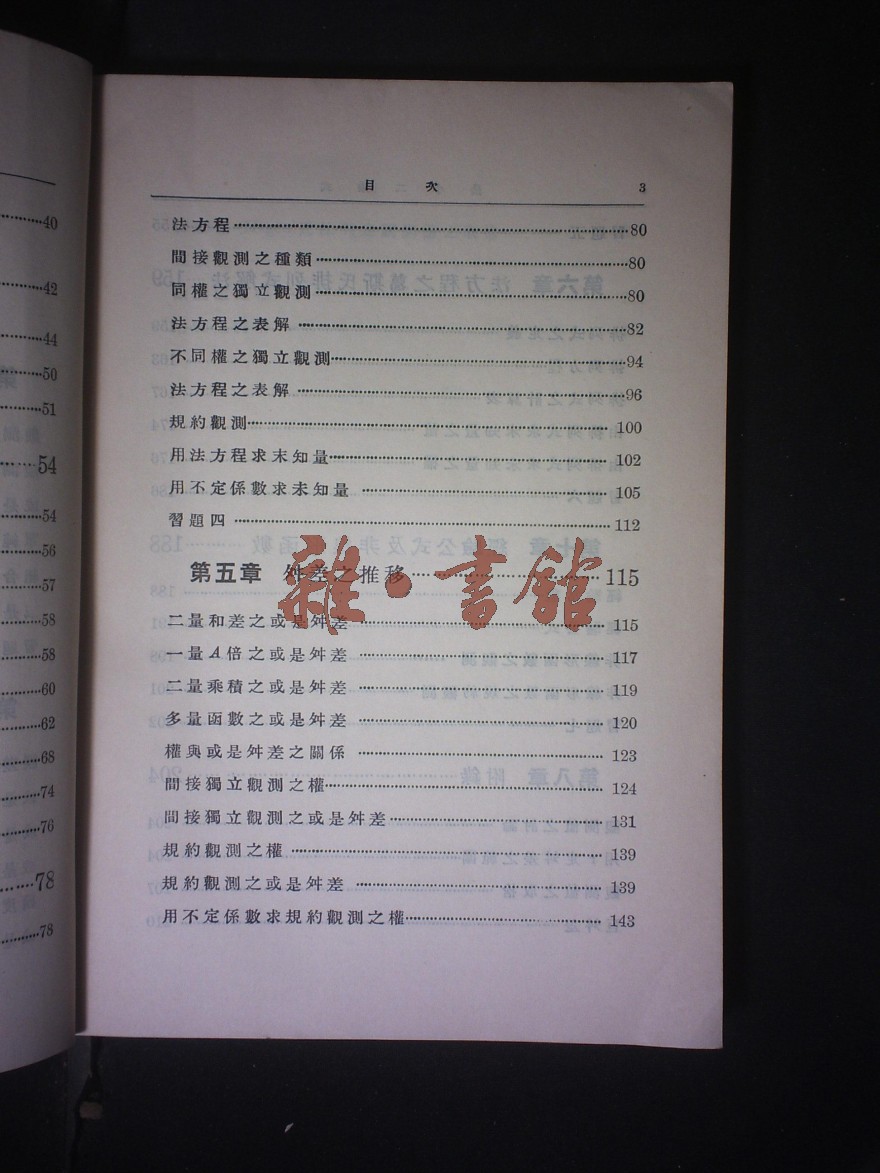 40
42
44
50
51
54
54
56
57
58
58
60
62
68
74
76
78
78
目次 3
法方程 80
間接觀測之種類 80
同權之獨立觀測 80
法方程之表解 82
不同權之獨立觀測 94
法方程之表解 96
規約觀測 100
用法方程求未知量 102
用不定係數求未知量 105
習題四 112
第五章 舛差之推移 115
二量和差之或是舛差 115
一量A倍之或是舛差 117
二量乘積之或是舛差 119
多量函數之或是舛差 120
權與或是舛差之關係 123
間接獨立觀測之權 124
間接獨立觀測之或是舛差 131
規約觀測之權 139
規約觀測之或是舛差 139
用不定係數求規約觀測之權 143
雜·書館